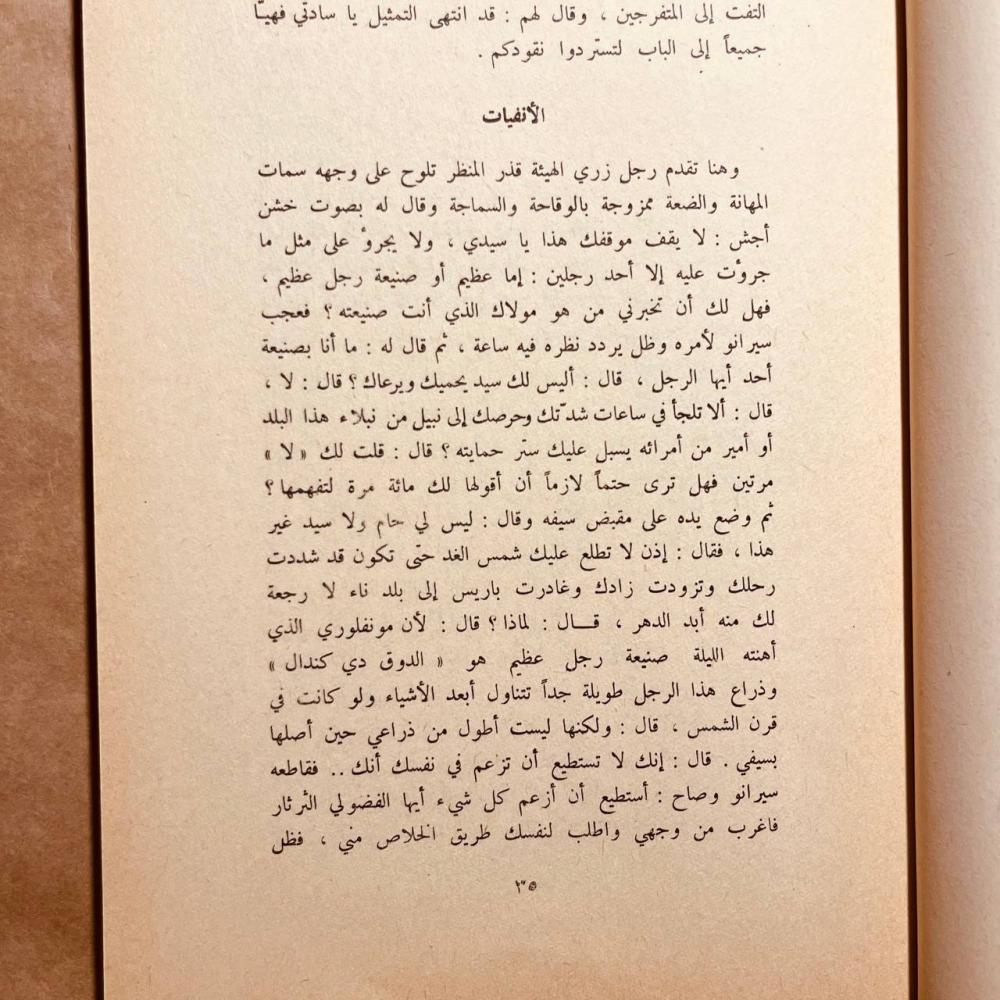 التفت إلى المتفرجين ، وقال لهم : قد انتهى التمثيل يا سادتي فهيّا
جميعاً إلى الباب لتستردوا نقودكم .
الأنفيات
وهنا تقدم رجل زري الهيئة قذر المنظر تلوح على وجهه سمات
المهانة والضعة ممزوجة بالوقاحة والسماجة وقال له بصوت خشن
أجش : لا يقف موقفك هذا يا سيدي ، ولا يجرؤ على مثل ما
جرؤت عليه إلا أحد رجلين : إما عظيم أو صنيعة رجل عظيم ،
فهل لك أن تخبرني من هو مولاك الذي أنت صنيعته ؟ فعجب
سيرانو لأمره وظل يردد نظره فيه ساعة ، ثم قال له : ما أنا بصنيعة
أحد أيها الرجل ، قال : أليس لك سيد يحميك ويرعاك ؟ قال : لا ،
قال : ألا تلجأ في ساعات شدّتك وحرصك إلى نبيل من نبلاء هذا البلد
أو أمير من أمرائه يسبل عليك ستر حمايته ؟ قال : قلت لك « لا »
مرتين فهل ترى حتماً لازماً أن أقولها لك مائة مرة لتفهمها ؟
ثم وضع يده على مقبض سيفه وقال : ليس لي حام ولا سيد غير
هذا ، فقال : إذن لا تطلع عليك شمس الغد حتى تكون قد شددت
رحلك وتزودت زادك وغادرت باريس إلى بلد ناء لا رجعة
لك منه أبد الدهر ، قــال : لماذا ؟ قال : لأن مونفلوري الذي
أهنته الليلة صنيعة رجل عظيم هو « الدوق دي كندال »
وذراع هذا الرجل طويلة جداً تتناول أبعد الأشياء ولو كانت في
قرن الشمس ، قال : ولكنها ليست أطول من ذراعي حين أصلها
بسيفي . قال : إنك لا تستطيع أن تزعم في نفسك أنك .. فقاطعه
سيرانو وصاح : أستطيع أن أزعم كل شيء أيها الفضولي الثرثار
فاغرب من وجهي واطلب لنفسك طريق الخلاص مني ، فظل
٣٥